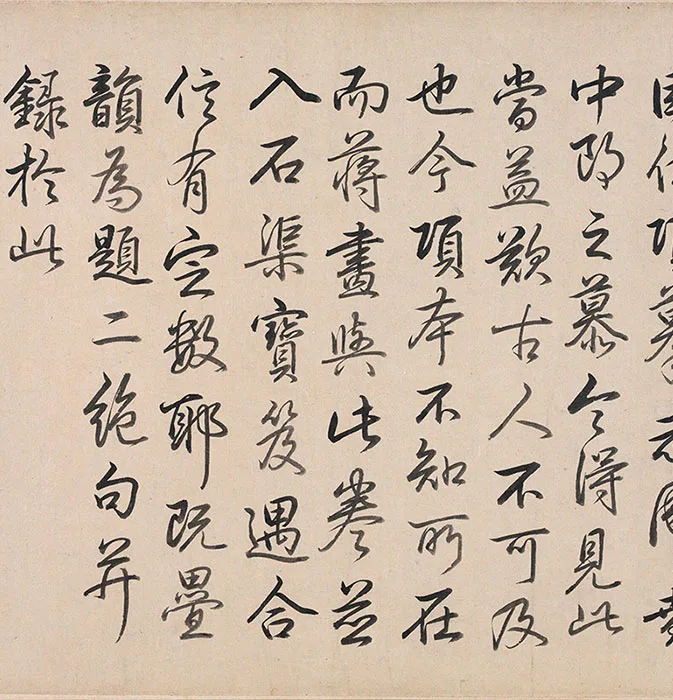 中郎之慕今得見此
當益歎古人不可及
也今項本不知所在
而蔣畫與此卷並
入石渠寶笈遇合
信有定數耶既疊
韻為題二絶句并
録於此